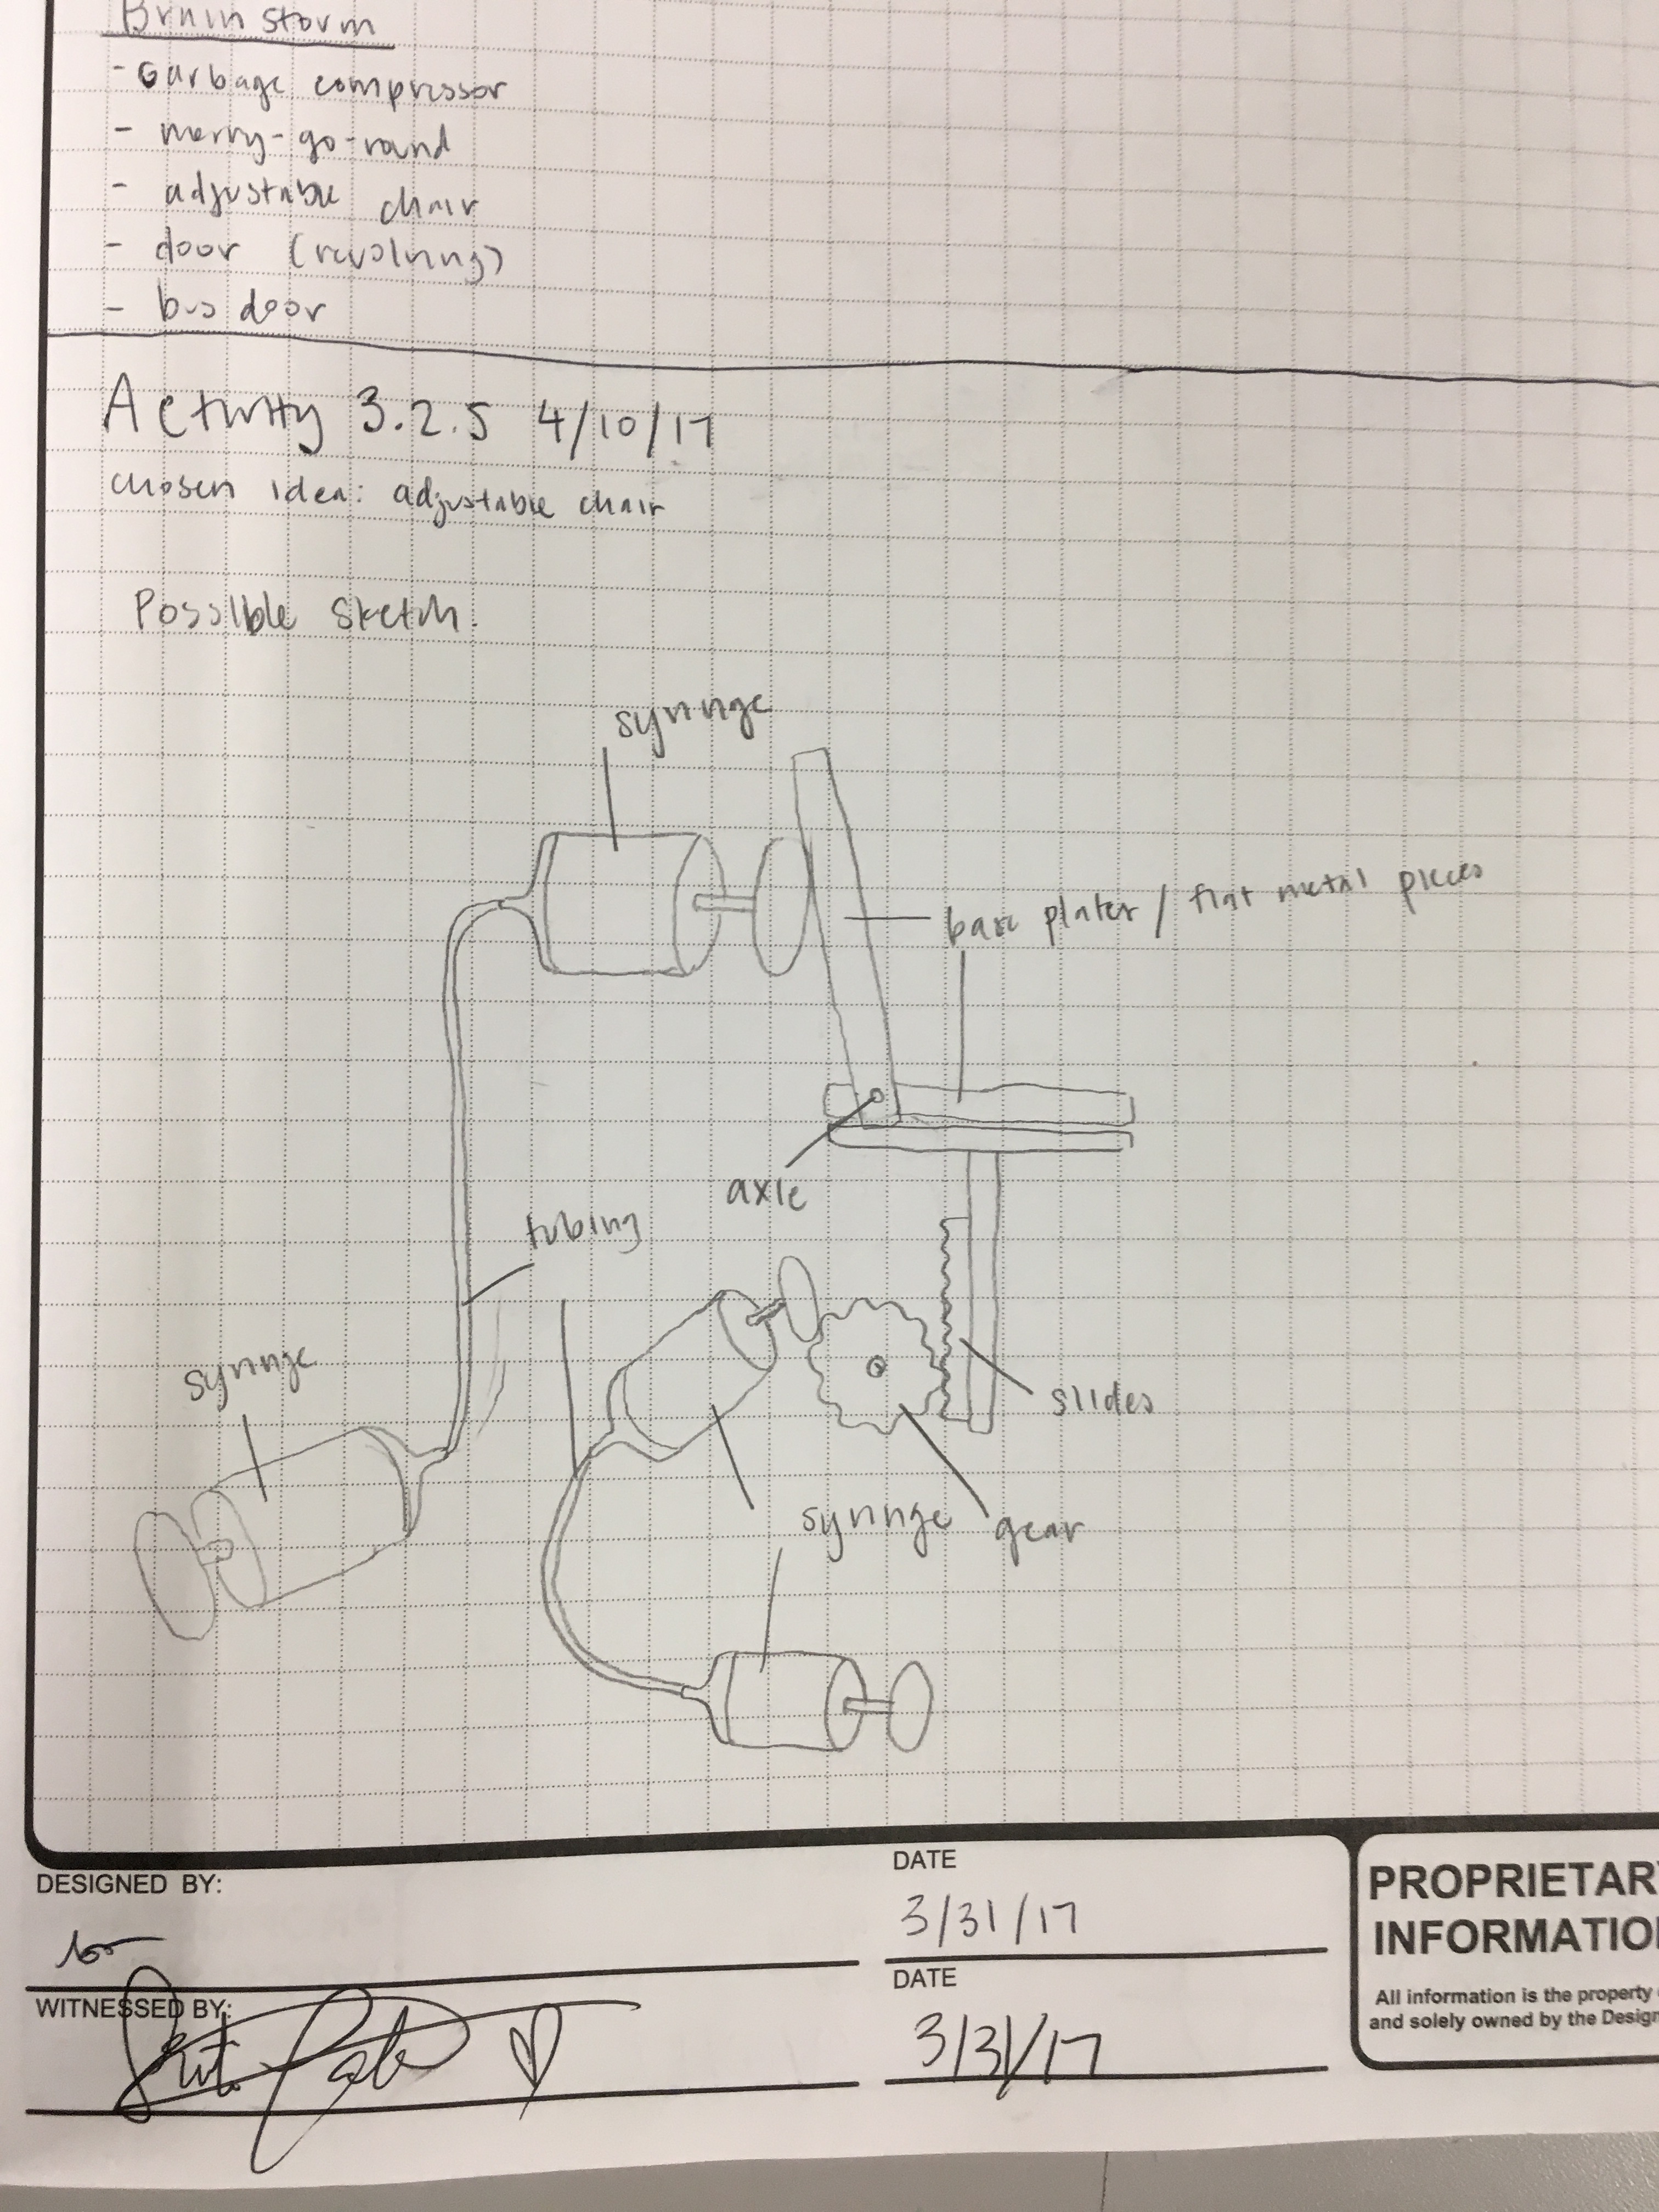 Brain storm
- Garbage compressor
- merry-go-round
- adjustable chair
- door (revolving)
- bus door
Activity 3.2.5 4/10/17
chosen idea: adjustable chair
Possible sketch:
syringe
base plates / flat metal pieces
axle
tubing
syringe
slides
syringe gear
DESIGNED BY:
DATE
3/31/17
WITNESSED BY:
DATE
3/31/17
PROPRIETAR
INFORMATIO
All information is the property
and solely owned by the Design